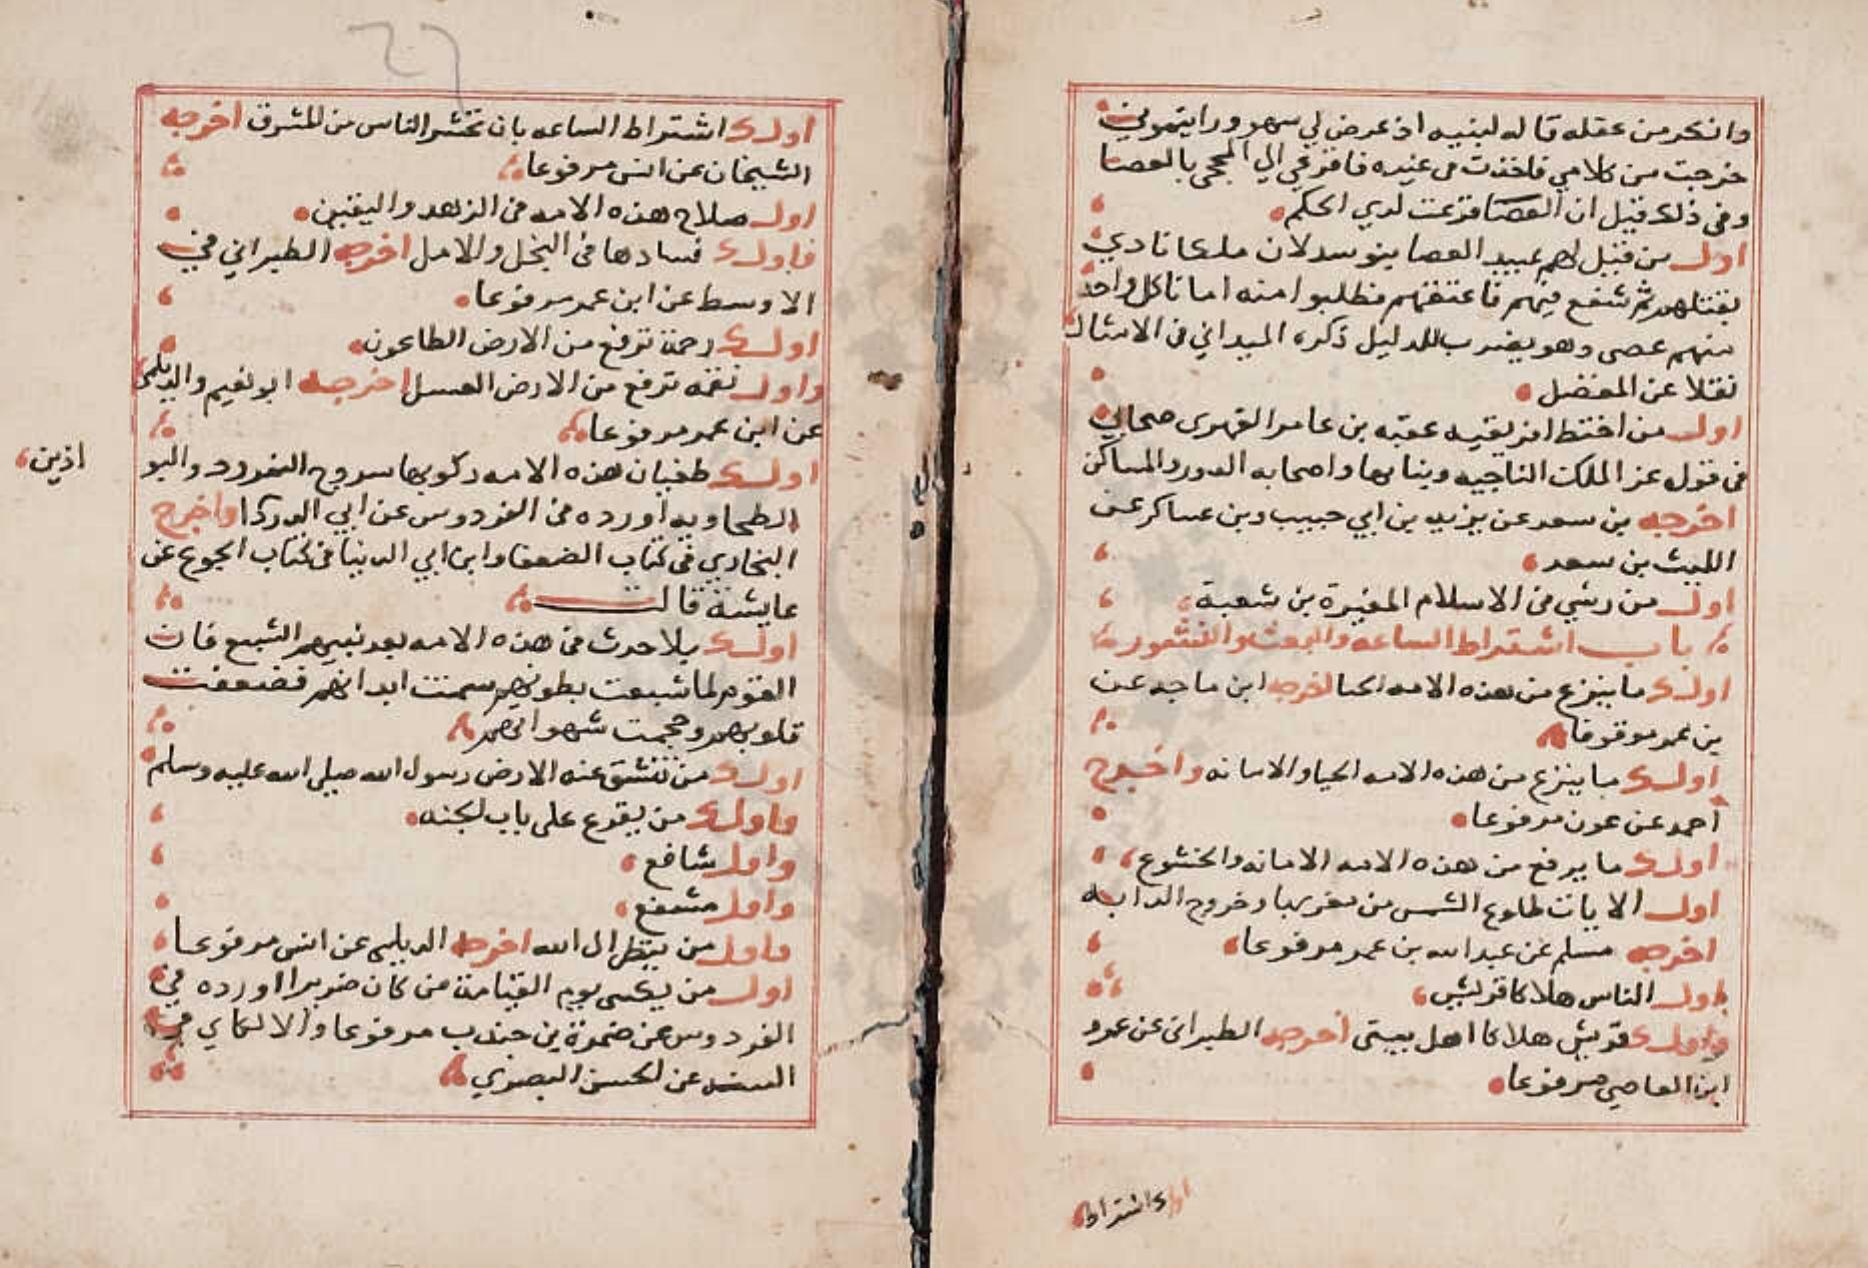 وانكر من عقله قاله لبنيه اذ عرض لي سهو ورايتموني
خرجت من كلامي فاخذت في غيره فاقرعي الي المجحي بالعصا
وفي ذلك قيل ان العصا قرعت لدي الحكم
اول من قيل لهم عبيد العصا بنو سد لان ملكا نادي
بقتلهم ثم شفع فيهم فاعتقهم فطلبوا منه امانا كل واحد
منهم عصى وهو يضرب للدليل ذكره الميداني في الامثال
نقلا عن المفضل
اول من اختط افريقيه عقبه بن عامر الفهرى صحابي
في قول عز الملك الناجيه وبنا بها واصحابه الدور والمساكن
اخرجه بن سعد عن يزيد بن ابي حبيب وبن عساكر عن
الليث بن سعد
اول من رشي في الاسلام المغيرة بن شعبة
باب اشتراط الساعه والبعث والنشور
اولـ ما ينزع من هذه الامه الحيا اخرجه ابن ماجه عن
بن عمر موقوفا
اولـ ما ينزع من هذه الامه الحيا والامانه واخرج
أحمد عن عون مرفوعا
اولـ ما يرفع من هذه الامه الامانه والخشوع
اول الايات طلوع الشمس من مغربها وخروج الدابه
اخرجه مسلم عن عبد الله بن عمر مرفوعا
اول الناس هلاكا قريش
واول قريش هلاكا اهل بيتى أخرجه الطبرانى عن عمرو
ابن العاصي مرفوعا
اول اشتراط
اول اشتراط الساعه بان تحشر الناس من المشرق اخرجه
الشيخان عن انس مرفوعا
اول صلاح هذه الامه في الزهد واليقين
فاول فسادها في البخل والامل اخرجه الطبراني في
الاوسط عن ابن عمر مرفوعا
اول رحمة ترفع من الارض الطاعون
واول نقمه ترفع من الارض العسل اخرجه ابو نعيم والديلمي
عن ابن عمر مرفوعا
اول طغيان هذه الامه ركوبها سروج النمورد والبو
اذين
الطحاويه اورده في الفردوس عن ابي الدردا واخرج
البخاري في كتاب الضعفا وابن ابي الدنيا في كتاب الجوع عن
عايشة قالت
اول بلا حدث في هذه الامه بعد نبيهم الشبع فان
القوم لما شبعت بطونهم سمنت ابدانهم فضعفت
قلوبهم وجمحت شهواتهم
اول من تنشق عنه الارض رسول الله صلى الله عليه وسلم
واول من يقرع على باب الجنه
واول شافع
واول مشفع
واول من ينظر ال الله اخرجه الديلمى عن انس مرفوعا
اول من يكسى يوم القيامة من كان ضريرا اورده في
الفردوس عن ضمرة بن جندب مرفوعا والالكاي في
السنه عن الحسن البصري